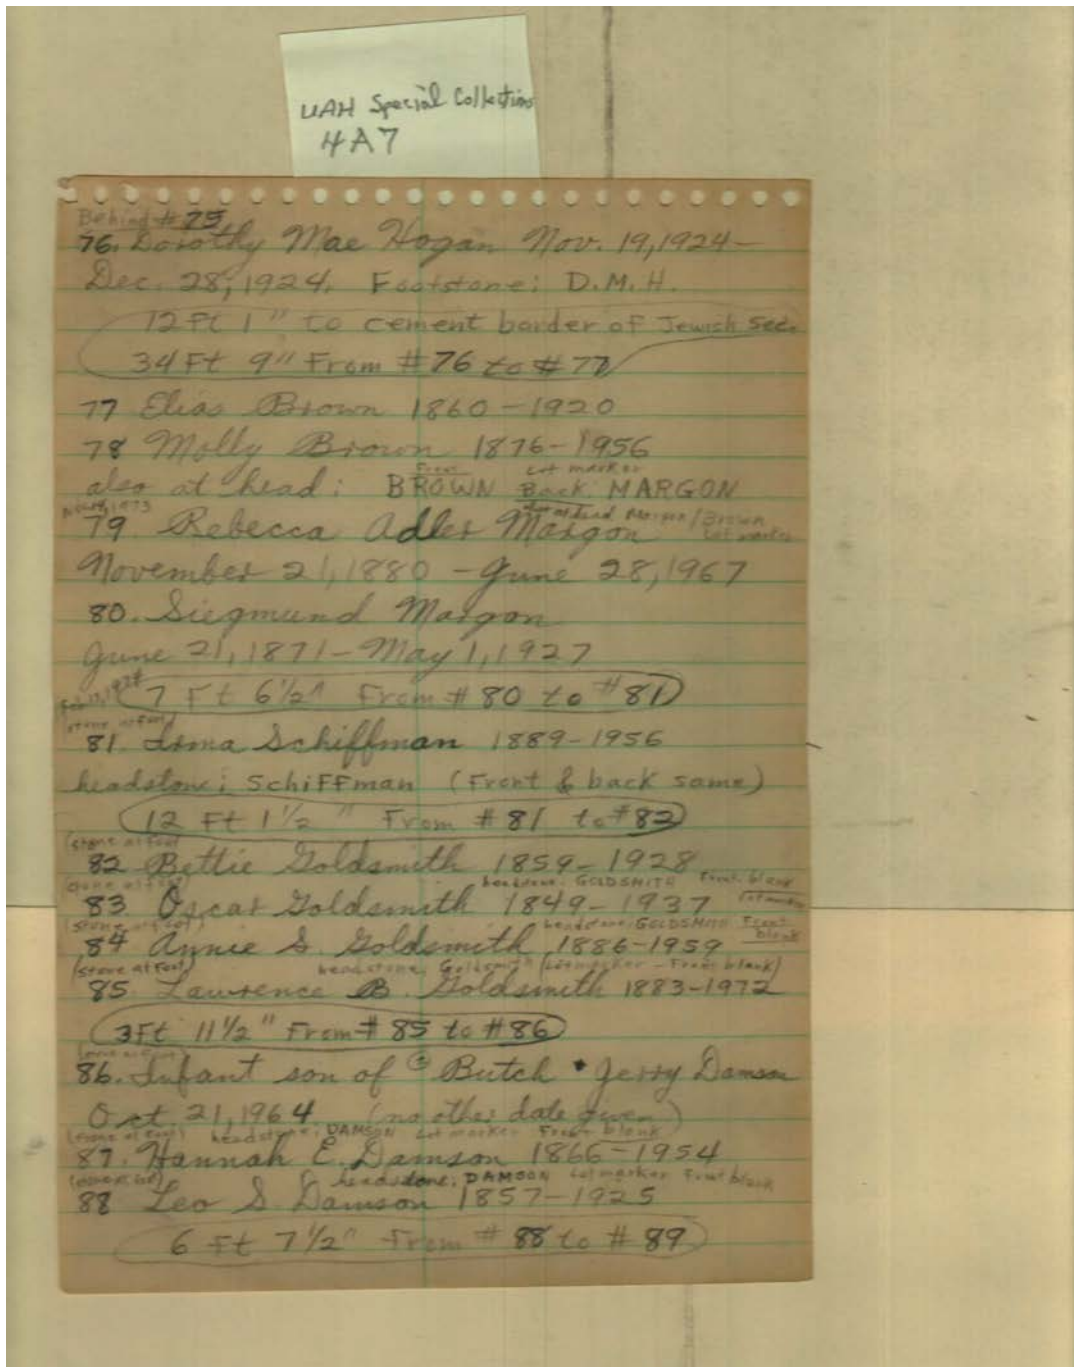 UAH Special Collections
4A7
Behind # 75
76. Dorothy Mae Hogan Nov. 19, 1924 –
Dec. 28, 1924. Footstone: D.M.H.
12 Ft 1" to cement border of Jewish Sec.
34 Ft 9" From # 76 to # 77
77 Elias Brown 1860 – 1920
78 Molly Brown 1876 – 1956
Front Lot marker
also at head: BROWN Back: MARGON
79. Rebecca Adler Margon
Margon / Brown
Lot marker
November 21, 1880 – June 28, 1967
80. Siegmund Margon
June 21, 1871 – May 1, 1927
7 Ft 6 1/2" From # 80 to # 81
(stone at foot)
81. Irma Schiffman 1889 – 1956
headstone: Schiffman (Front & back same)
12 Ft 1 1/2" From # 81 to # 82
(stone at foot)
82 Bettie Goldsmith 1859 – 1928
(stone at foot) headstone: GOLDSMITH Front blank
Lot marker
83 Oscar Goldsmith 1849 – 1937
(stone at foot) headstone: GOLDSMITH Front blank
84 Annie S. Goldsmith 1886-1959
(stone at foot) headstone: Goldsmith (Lot marker – Front blank)
85. Lawrence B. Goldsmith 1883-1972
3 Ft 11 1/2" From # 85 to # 86
86. Infant son of Butch • Jerry Damson
Oct 21, 1964 (no other date given)
(stone at foot) headstone: DAMSON Lot marker Front blank
87. Hannah E. Damson 1866 – 1954
headstone: DAMSON Lot marker Front blank
88 Leo S. Damson 1857 – 1925
6 Ft 7 1/2" From # 88 to # 89